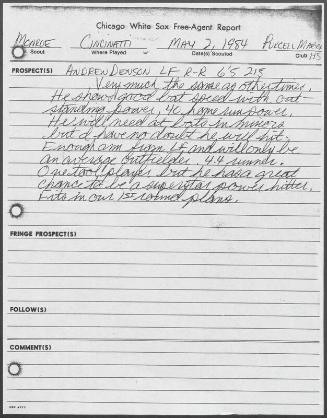 Chicago White Sox Free-Agent Report
Monroe Cincinatti May 2, 1984 Purcell Marian
Scout Where Played Date(s) Scouted Club HS
PROSPECT(S) ANDREW DENSON LF R-R 6'5 215
Very much the same as other times.
He showed good bat speed with out
standing power. 40 home run power.
He will need at bats in minors
but I have no doubt he will hit.
Enough arm from LF and will only be
an average outfielder. 4.4 runner.
One tool player but he has a great
chance to be a superstar power hitter.
Fits in our 1st round plans.
FRINGE PROSPECT(S)
FOLLOW(S)
COMMENT(S)